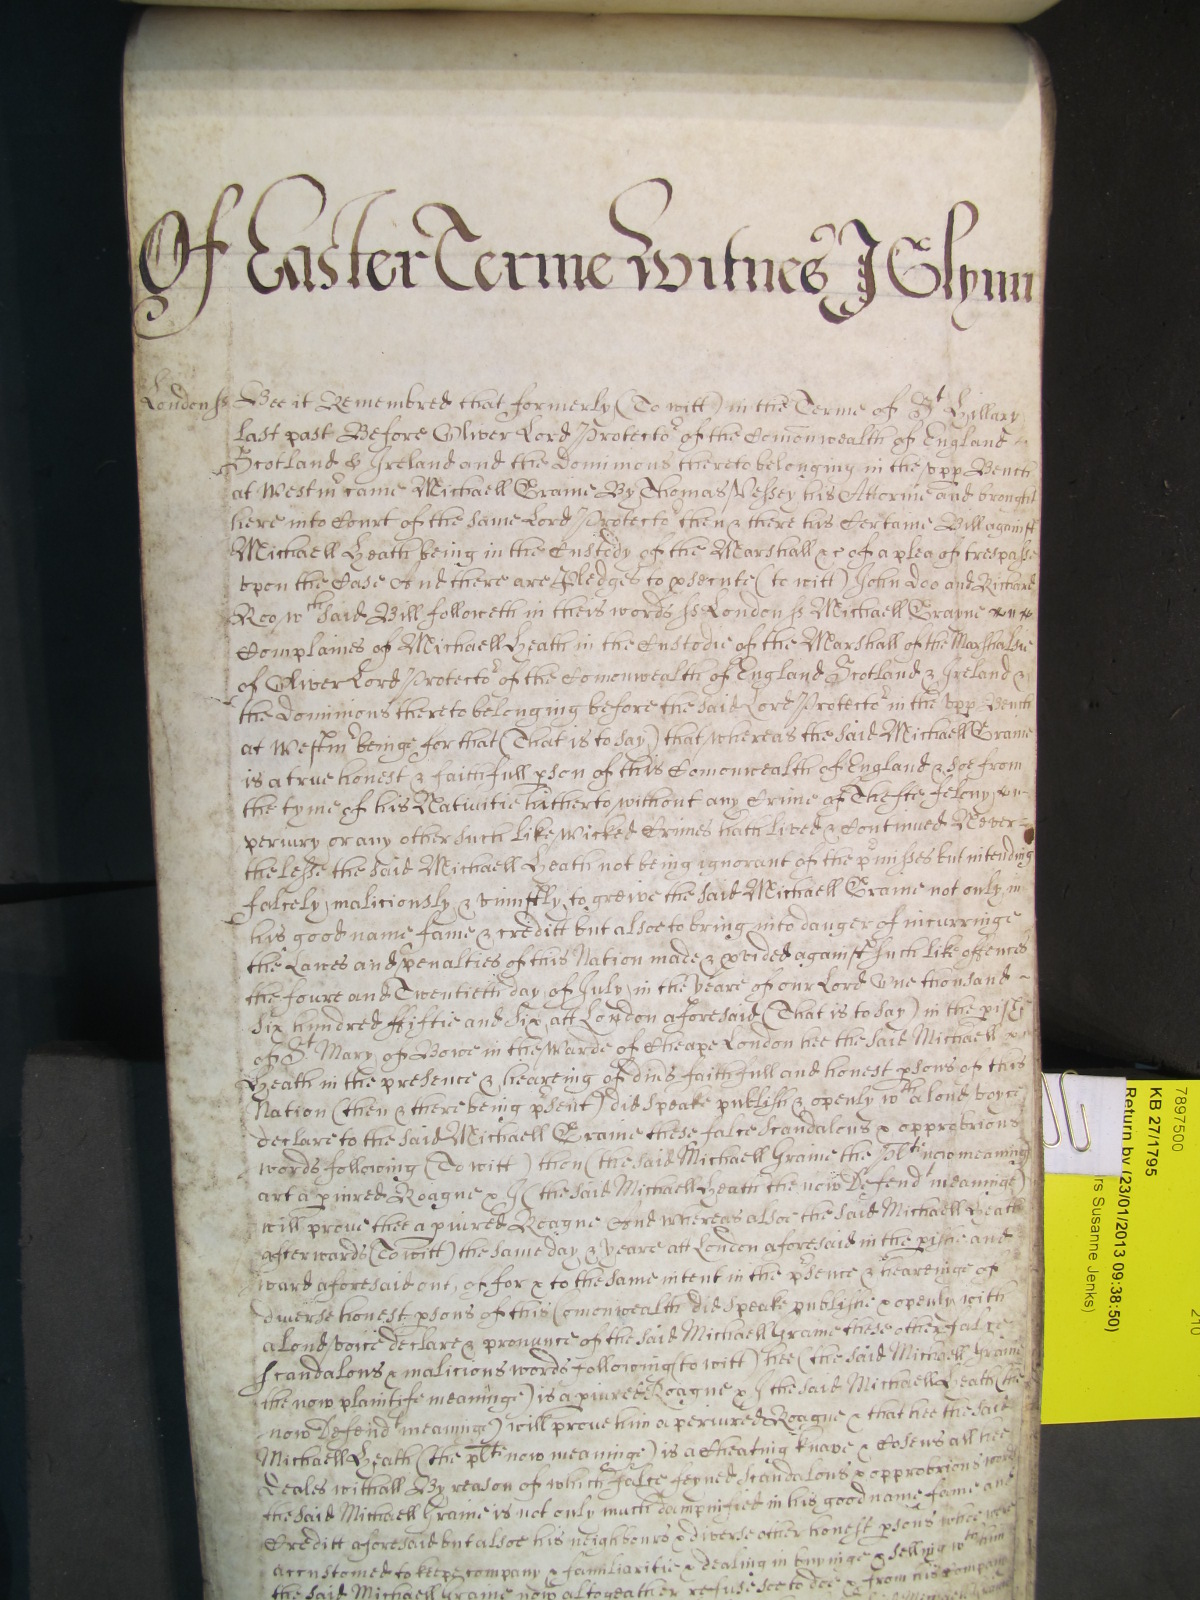 Of Easter Terme Witnes J Glynn
London ss Bee it Remembred that formerly (To witt) in the Terme of St Hillary
last past Before Oliver Lord Protector of the Comonwealth of England
Scotland & Ireland and the Dominions thereto belonging in the vpp Bench
at Westmr came Michaell Grame By Thomas Vessey his Attorne and brought
here into Court of the same Lord Protector then & there his Certaine Bill against
Michaell Heath being in the Custody of the Marshall &c of a plea of trespasse
vpon the Case And there are Pledges to psecute (to witt) John Doo and Richard
Roo wch said Bill followeth in theis words ss London ss Michaell Grayne
Complaines of Michaell Heath in the Custodie of the Marshall of the Marshalsie
of Oliver Lord Protector of the Comonwealth of England Scotland & Ireland &
the Dominions thereto belonging before the said Lord Protector in the vpp Bench
at Westmr beinge for that (That is to say) that whereas the said Michaell Grame
is a true honest & faithfull pson of this Comonwealth of England & soe from
the tyme of his Nativitie hitherto without any Crime of Thefte felony
periury or any other such like wicked Crimes hath lived & Continued Never
thelesse the said Michaell Heath not being ignorant of the pmisses but intending
falcely maliciously & viniustly to greive the said Michaell Grame not only in
his good name fame & creditt but alsoe to bring into danger of incurringe
the Lawes and penalties of this Nation made & pvided against such like offences
the foure and Twentieth day of July in the yeare of our Lord One thousand
six hundred ffiftie and six att London aforesaid (That is to say) in the pish
of St Mary of Bowe in the Warde of Cheape London hee the said Michaell
Heath in the presence & heareing of divs faithfull and honest psons of this
Nation (then & there being psent) did speake publish & openly wth a loud voyce
declare to the said Michaell Grame these falce scandalous & opprobrious
words following (To witt) thou (the said Michaell Grame the Plte now meaning)
art a piured Roague & I (the said Michaell Heath the now Defendt meaninge)
will prove thee a piured Roague And whereas alsoe the said Michaell Heath
afterwards (To witt) the same day & yeare att London aforesaid in the pishe and
ward aforesaid out, of for & to the same intent in the psence & heareinge of
diverse honest psons of this Comonwealth did speake publishe & openly with
a loud voice declare & pronunce of the said Michaell Grame these other falce
scandalous & malicious words following (to witt) hee (the said Michaell Grame
the now plaintife meaninge) is a piured Roague & I the said Michaell Heath (the
now Defendt meaninge) will prove him a periured Roague & that hee the said
Michaell Heath (the plte now meaninge) is a Cheating knave & Cosens all hee
deales withall By reason of which falce feyned scandalous & opprobrious words
the said Michaell Grame is not only much dampnified in his good name fame and
Creditt aforesaid but alsoe his neighbours & diverse other honest psons who were
accustomed to keepe company & familiaritie & dealing in buyinge & selling wth him
the said Michaell Grame now altogeather refuse soe to doe & from his company
7897500
KB 27/1795
Return by (23/01/2013 09:38:50)
rs Susanne Jenks)
210